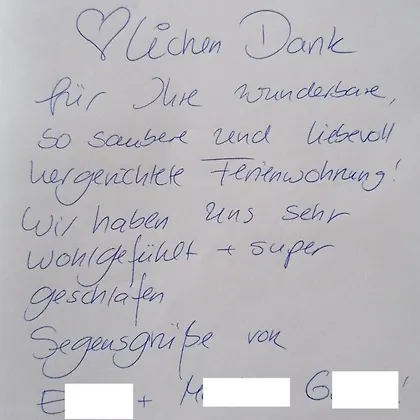 ♡lichen Dank
für Ihre wunderbare,
so saubere und liebevoll
hergerichtete Ferienwohnung!
Wir haben uns sehr
wohlgefühlt + super
geschlafen
Segensgrüße von
E + M G !